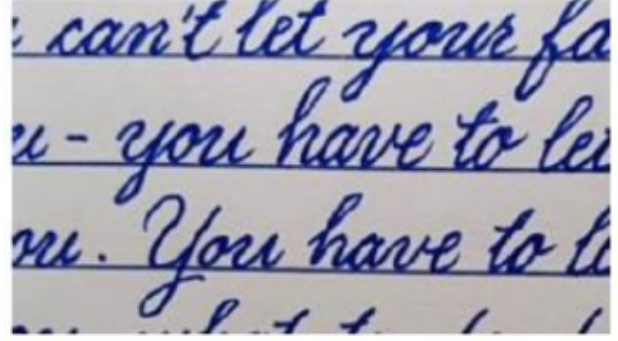 can't let your fa
u - you have to le
ou. You have to l
what to